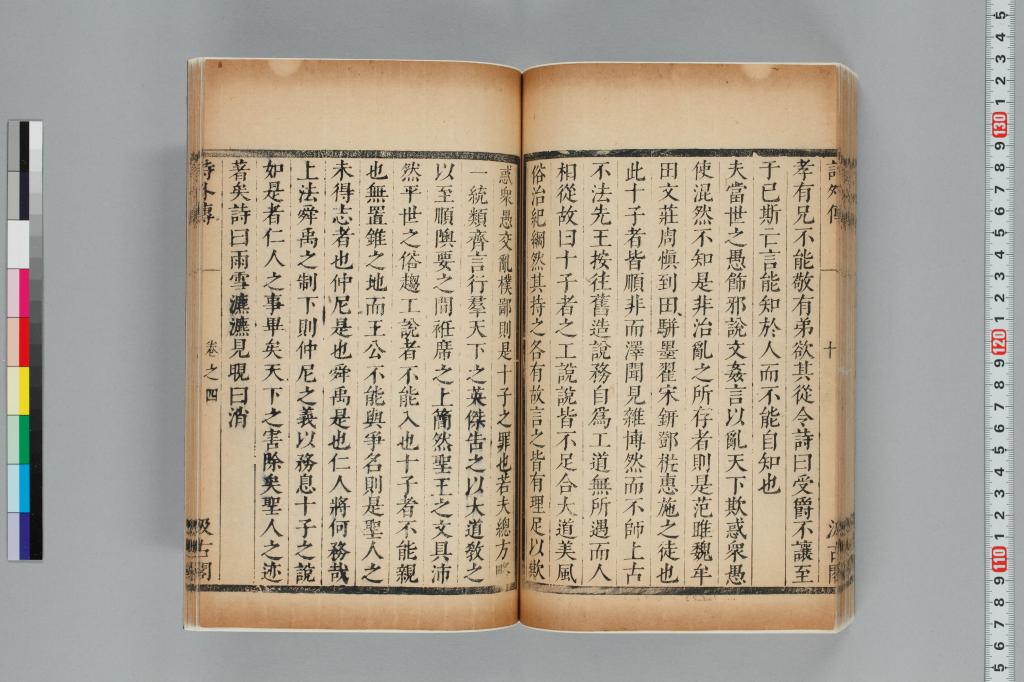 詩外傳
十
汲古閣
孝有兄不能敬有弟欲其從令詩曰受爵不讓至
于已斯亡言能知於人而不能自知也
夫當世之愚飾邪說文姦言以亂天下欺惑衆愚
使混然不知是非治亂之所存者則是范雎魏牟
田文莊周慎到田駢墨翟宋鈃鄧析惠施之徒也
此十子者皆順非而澤聞見雜博然而不師上古
不法先王按往舊造說務自爲工道無所遇而人
相從故曰十子者之工說說皆不足合大道美風
俗治紀綱然其持之各有故言之皆有理足以欺
惑衆愚交亂樸鄙則是十子之罪也若夫總方
一統類齊言行羣天下之英傑告之以大道教之
以至順隩要之間衽席之上簡然聖王之文具沛
然平世之俗趨工說者不能入也十子者不能親
也無置錐之地而王公不能與爭名則是聖人之
未得志者也仲尼是也舜禹是也仁人將何務哉
上法舜禹之制下則仲尼之義以務息十子之說
如是者仁人之事畢矣天下之害除矣聖人之迹
著矣詩曰雨雪瀌瀌見晛曰消
詩外傳
卷之四
汲古閣
5
4
3
2
1
130
9
8
7
6
5
4
3
2
1
120
9
8
7
6
5
4
3
2
1
110
9
8
7
6
5